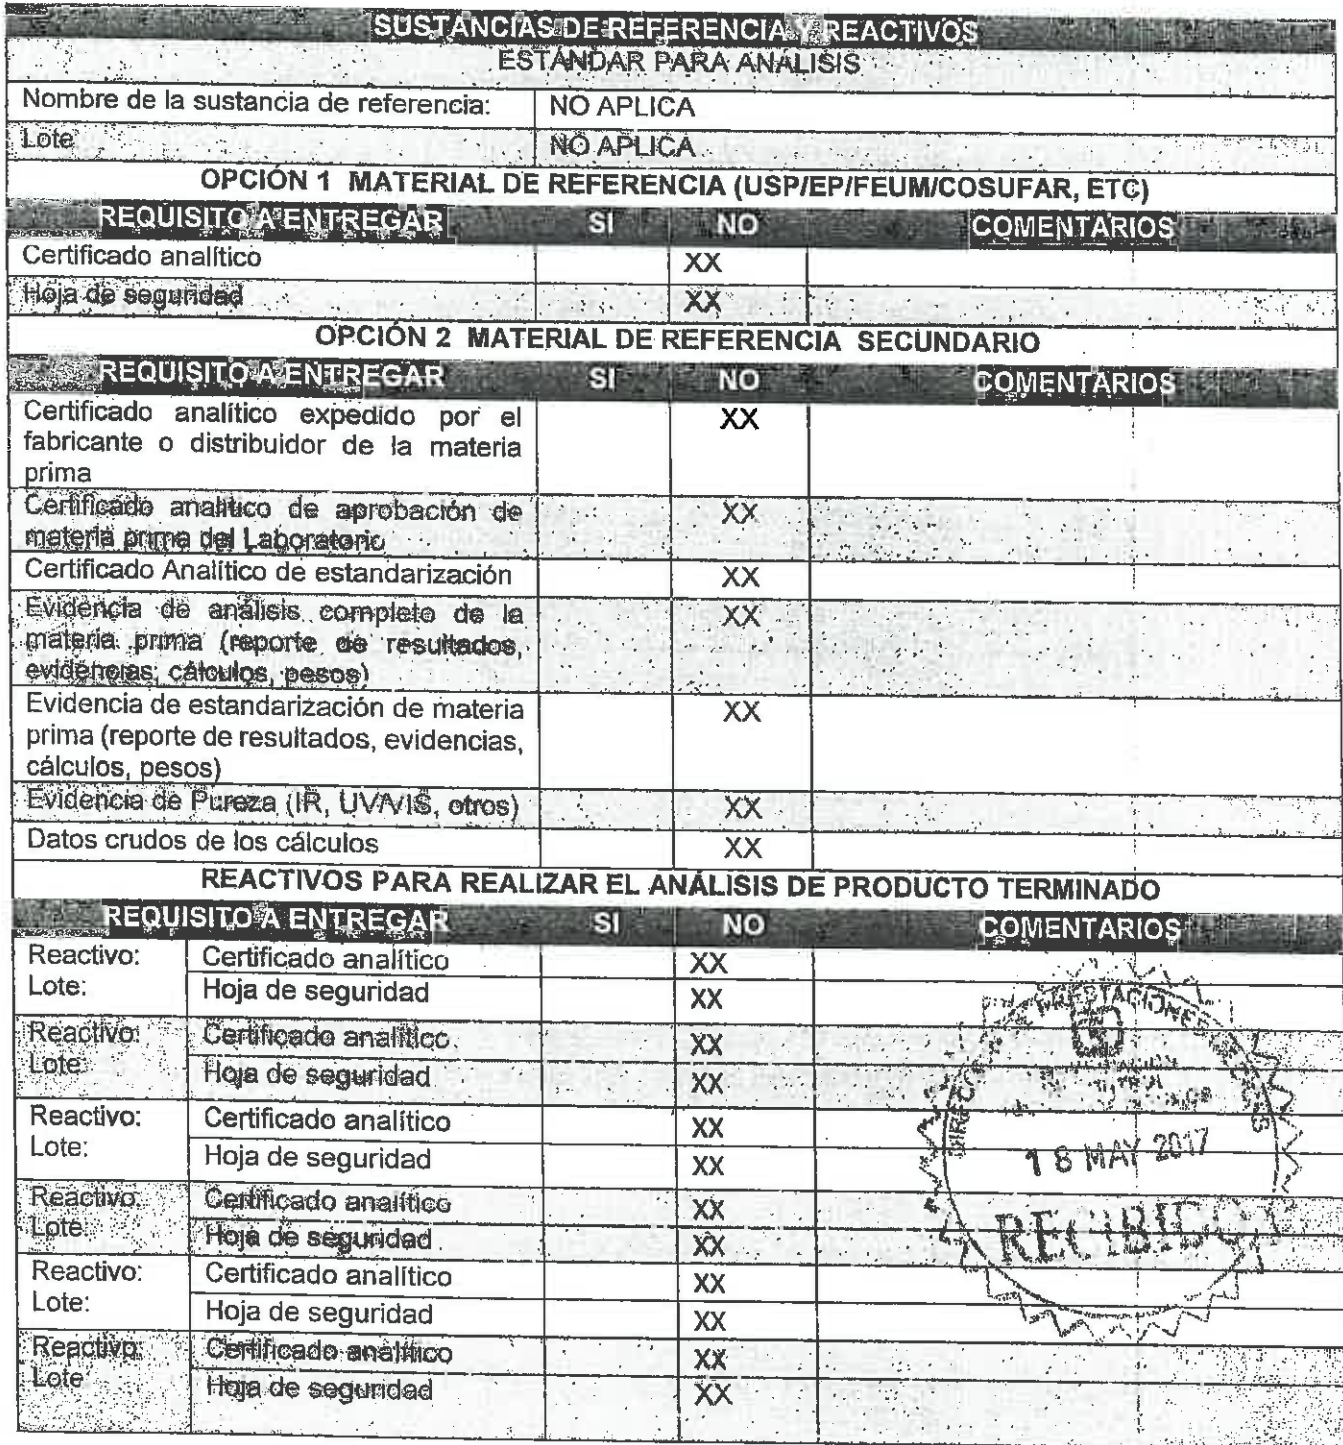 SUSTANCIAS DE REFERENCIA Y REACTIVOS
ESTÁNDAR PARA ANÁLISIS
Nombre de la sustancia de referencia: NO APLICA
Lote NO APLICA
OPCIÓN 1 MATERIAL DE REFERENCIA (USP/EP/FEUM/COSUFAR, ETC)
REQUISITO A ENTREGAR SI NO COMENTARIOS
Certificado analítico XX
Hoja de seguridad XX
OPCIÓN 2 MATERIAL DE REFERENCIA SECUNDARIO
REQUISITO A ENTREGAR SI NO COMENTARIOS
Certificado analítico expedido por el XX
fabricante o distribuidor de la materia
prima
Certificado analítico de aprobación de XX
materia prima del Laboratorio
Certificado Analítico de estandarización XX
Evidencia de análisis completo de la XX
materia prima (reporte de resultados,
evidencias, cálculos, pesos)
Evidencia de estandarización de materia XX
prima (reporte de resultados, evidencias,
cálculos, pesos)
Evidencia de Pureza (IR, UV/VIS, otros) XX
Datos crudos de los cálculos XX
REACTIVOS PARA REALIZAR EL ANÁLISIS DE PRODUCTO TERMINADO
REQUISITO A ENTREGAR SI NO COMENTARIOS
Reactivo: Certificado analítico XX
Lote: Hoja de seguridad XX
Reactivo: Certificado analítico XX
Lote: Hoja de seguridad XX
Reactivo: Certificado analítico XX
Lote: Hoja de seguridad XX
Reactivo: Certificado analítico XX
Lote: Hoja de seguridad XX
Reactivo: Certificado analítico XX
Lote: Hoja de seguridad XX
Reactivo: Certificado analítico XX
Lote Hoja de seguridad XX
18 MAY 2017
RECIBIDO